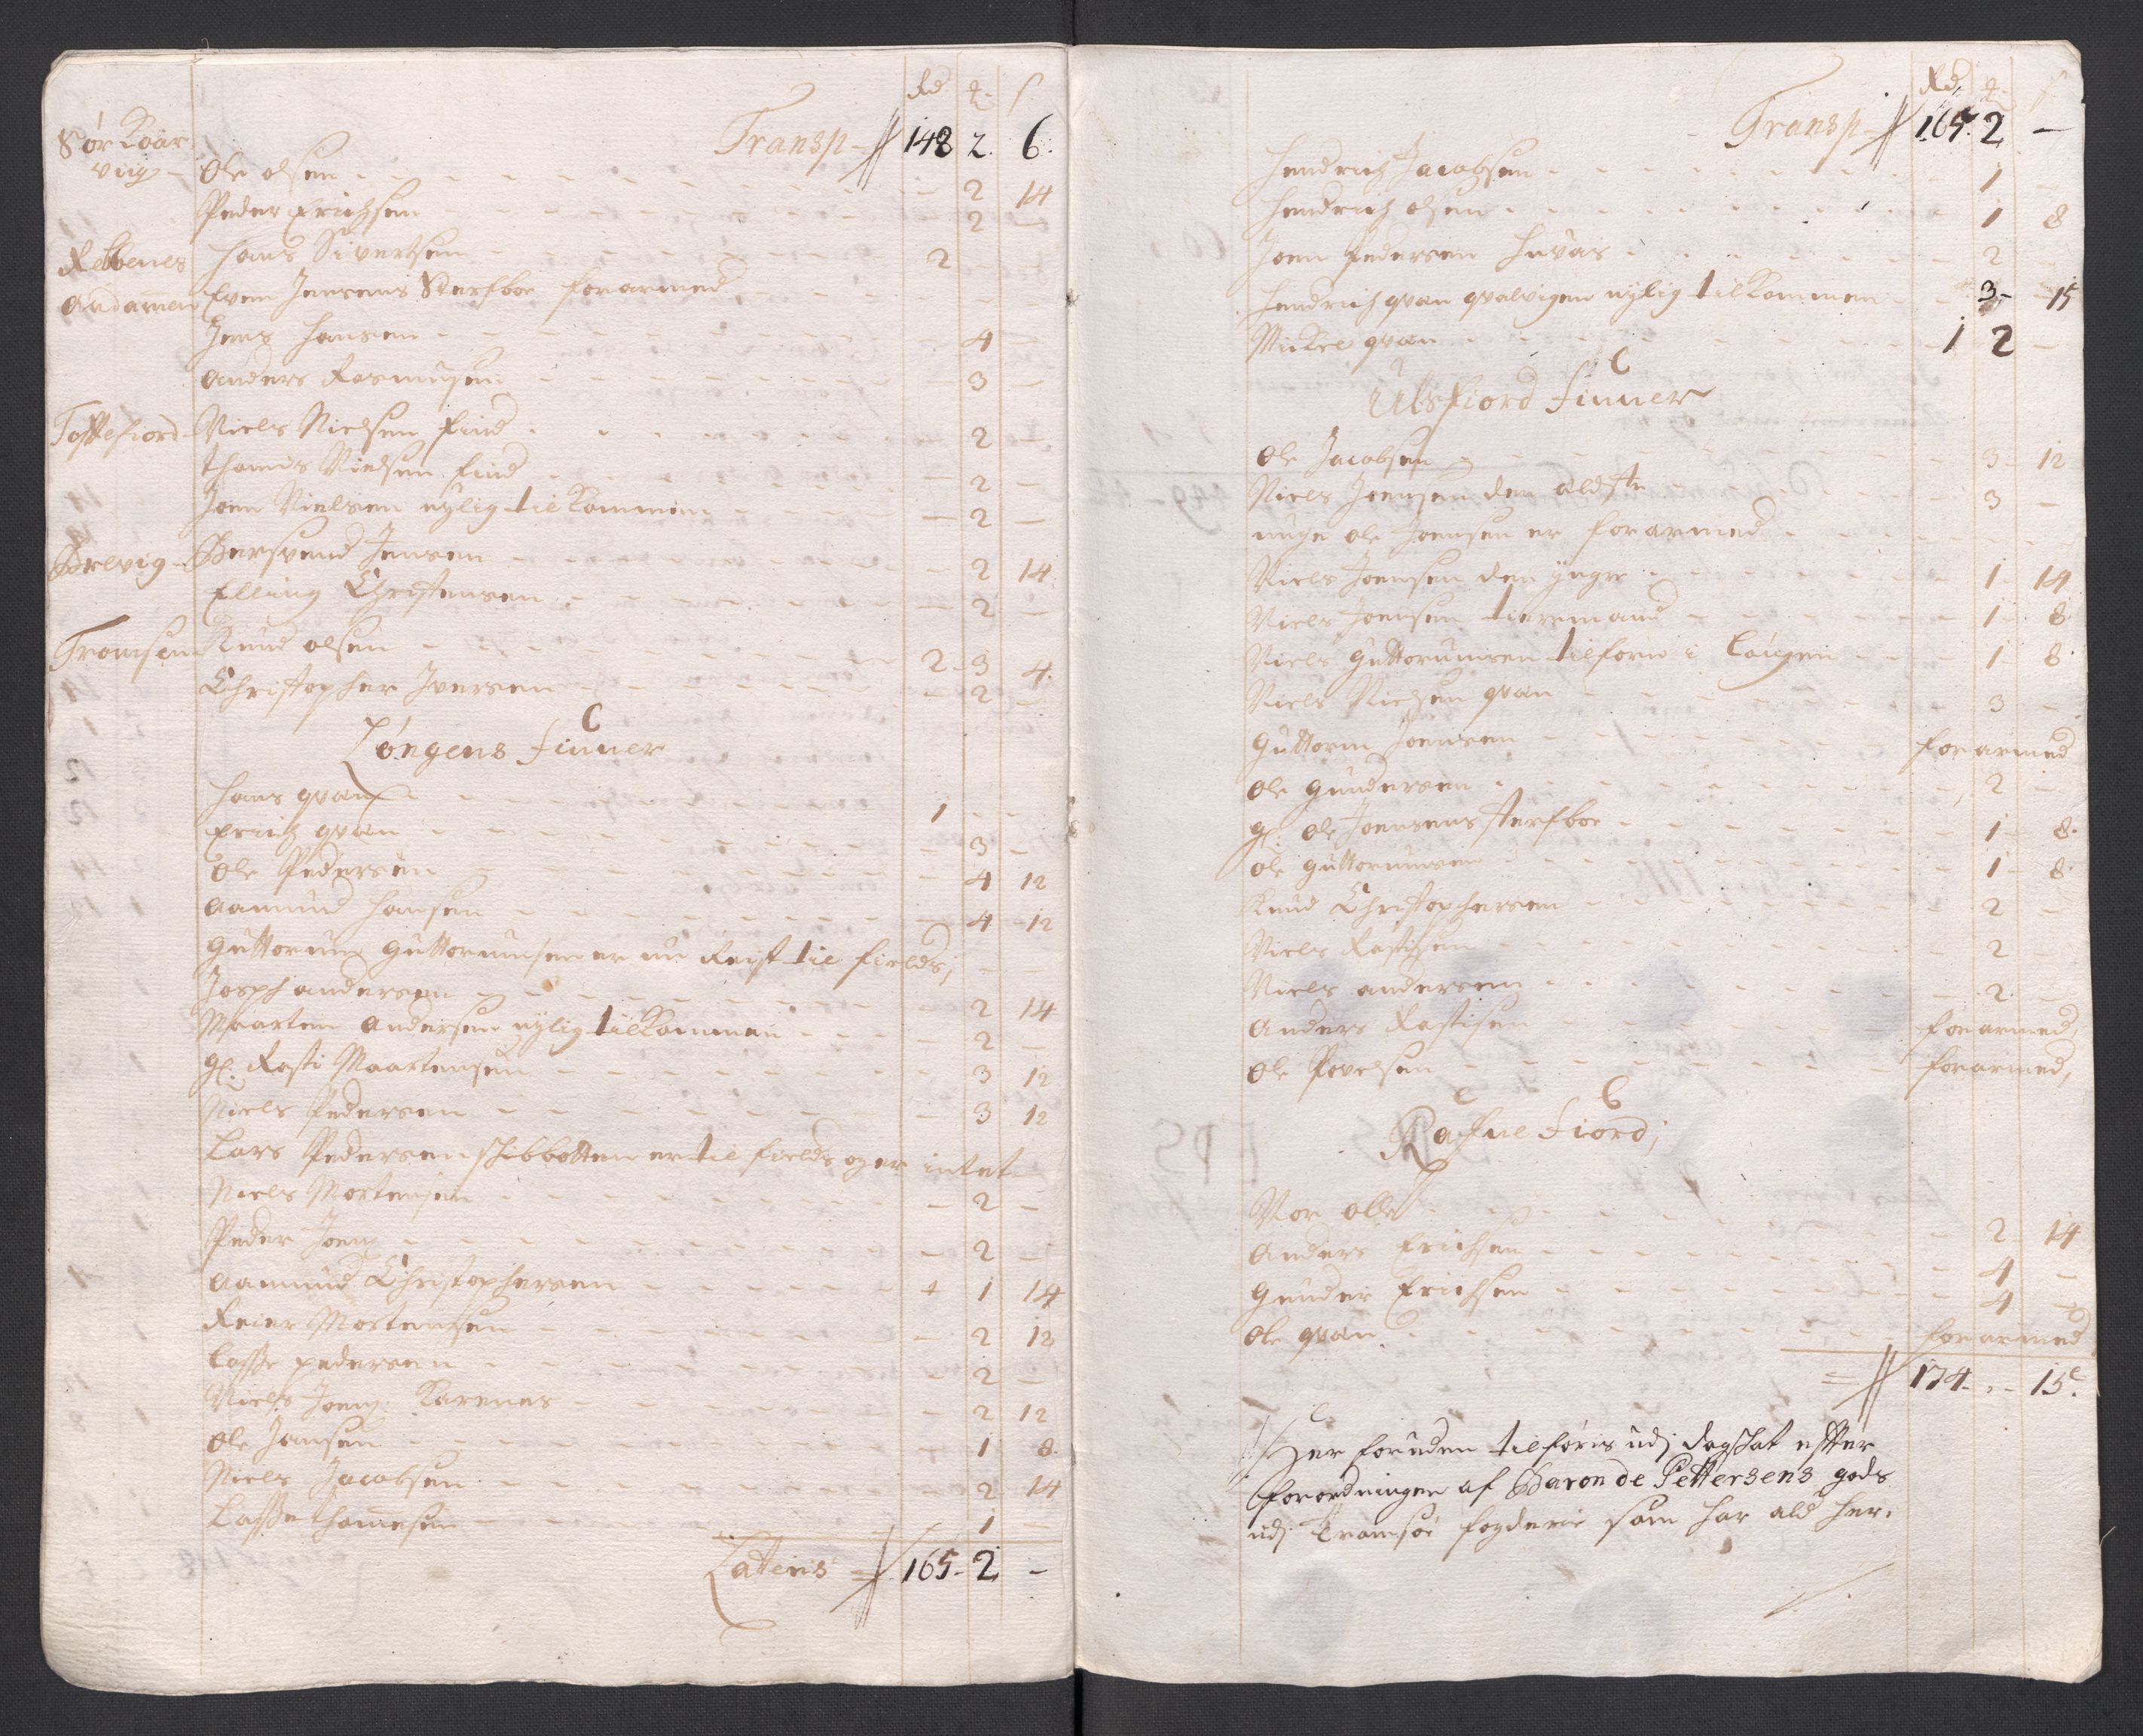 Rd ₰ s
Transp 148 2. 6.
Sør Koar
viig - Ole olsen - 2 14
Peder Erichsen - 2 -
Rebbenes Hans Sivertsen 2 - -
Andamen Even Jensens Sterfboe forarmed
Jens Hansen - 4 -
Anders Rasmusen - 3 -
Toftefiord Niels Nielsen find - 2 -
Thomis Nielsen find - 2 -
Joen Nielsen nylig tilkommen - 2 -
Brevig - Bersvend Jensen - 2 14
Elling Christensen - 2 -
Tromsen Knud olsen 2 - 3 4.
Christopher Iversen - 2 -
Longens finner
Hans qvan 1 - -
Erich qvan - 3 -
Ole Pedersen - 4 12
Aamund Hansen - 4 - 12
Guttorm Guttormsen er nu Reist til fields;
Joseph andersen - 2 14
Maarten Andersen nylig tilkommen - 2 -
gl. Rasti Maartensen - 3 12
Niels Pedersen - 3 12
Lars Pedersen schibbotten er til fields og er intet
Niels Mortensen - 2 -
Peder Joens - 2 -
Aamund Christophersen + 1 14
Reier Mortensen - 2 12
Lasse pedersen - 2 -
Niels Joens. Karenes - 2 12
Ole Jansen - 1 8.
Niels Jacobsen - 2 14
Lasse thomesen - 1 -
Lateris 165 - 2 -
Rd ₰ s
Transp 165. 2 -
Hendrich Jacobsen 1 -
Hendrich olsen 1 8
Joen Pedersen 2 -
Hendrich qvan qvalvigen nylig tilkommen 3 - 15
Mickel qvan 1 2 -
Ulsfiord finner
Ole Jacobsen 3 - 12
Niels Joensen den eldste 3 -
unge ole Joensen er forarmed
Niels Joensen den yngre 1 - 14
Niels Joensen tieremand 1 - 8.
Niels Guttormsen tilforn i Langen 1 - 8.
Niels Nielsen qvan 3 -
Guttorm Joensen forarmed
Ole Gundersen 2 -
gl. Ole Joensens sterfboe 1 - 8.
Ole Guttormsen 1 - 8.
Knud Christophersen 2 -
Niels Rastisen 2 -
Niels andersen 2. -
Anders Rastisen forarmed,
Ole Povelsen forarmed,
Rafne fiord;
Mor olle 2 - 14
Anders Erichsen 4 -
Gunder Erichsen 4 -
Ole qvan forarmed
174 - - 15.
Her foruden tilføris udj dagschat efter
forordningen af Baron de Pettersens gods
udj Tromsøe fogderie som har ald her.